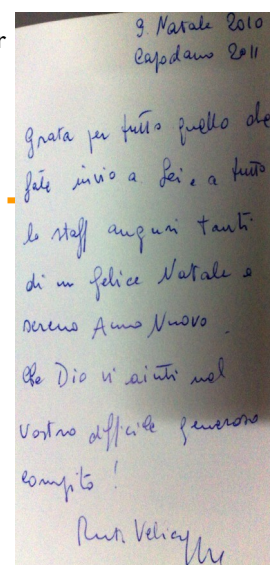 S. Natale 2010
Capodano 2011
Grata per tutto quello che
fate invio a Lei e a tutto
lo staff auguri tanti
di un felice Natale e
sereno Anno Nuovo.
Che Dio vi aiuti nel
vostro difficile generoso
compito!
r